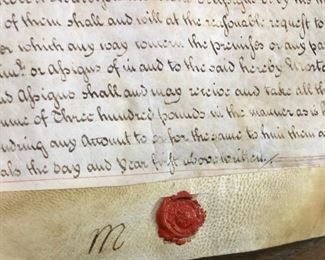 of them shall and will at the reasonable request to
or which any way concern the premises or any pa
or Assigns of in and to the said hereby
d Assigns shall and may receive and take all th
mme of Three hundred pounds in the manner as is
ndring any Account to or for the same to him them o
eals the day and Year first above written
M